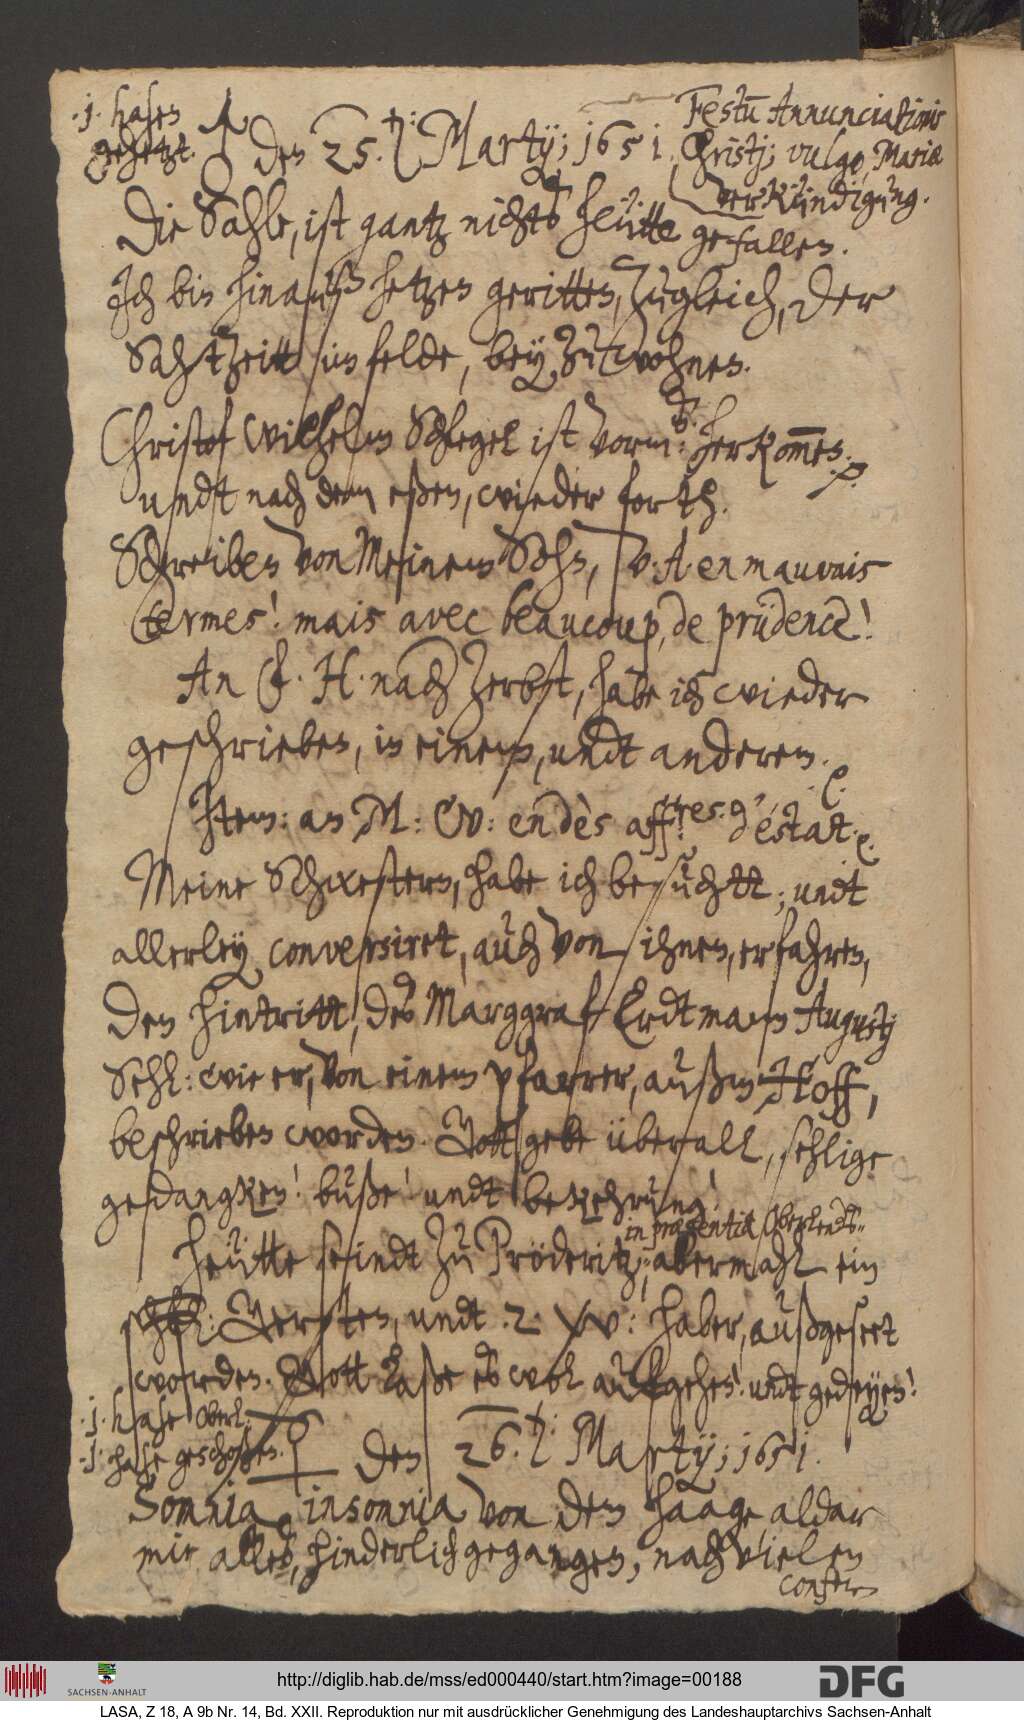 .1. hasen
gehetzt.
♂ den 25.t: Martij; 1651.
Festu Annunciationis
Christj; vulgo, Mariæ
Verkündigung.
Die Sahle, ist gantz nichts heütte gefallen.
Ich bin hinauß hetzen geritten, zugleich, der
Sahtzeitt im felde, beyzuwohnen.
Christof Wilhelm Schlegel ist vorm: herkommen.
undt nach dem eßen, wieder forth.
Schreiben von Meinem Sohn, v. A. en mauvais
termes! mais avec beaucoup, de prüdence!
An C. H. nach Zerbst, habe ich wieder
geschrieben, in einem, undt anderem. &c.
Item: an M: W: en dès aff:res. d'éstat. &c.
Meine Schwestern, habe ich besuchtt; undt
allerley conversiret, auch von ihnen, erfahren,
den hintritt, des Marggraf Erdtmann Augustj
Sehl: wie er, von einem pfarrer, außm Hoff,
beschrieben worden. Gott gebe überall, sehlige
gedangken! buße! undt bekehrung!
in præsentia Oberlends:
Heütte seindt zu Pröderitz, abermahl ein
Gersten, undt .2. W: haber, außgeseet
worden. Gott laße es wol aufgehen! undt gedeyen!
.1. hase Oberl:
.1. hase geschoßen.
☿ den 26.t: Martij; 1651.
Somnia insomnia von dem Haage aldar
mir alles, hinderlich gegangen, nach vielen
confer
http://diglib.hab.de/mss/ed000440/start.htm?image=00188
SACHSEN-ANHALT
DFG
LASA, Z 18, A 9b Nr. 14, Bd. XXII. Reproduktion nur mit ausdrücklicher Genehmigung des Landeshauptarchivs Sachsen-Anhalt